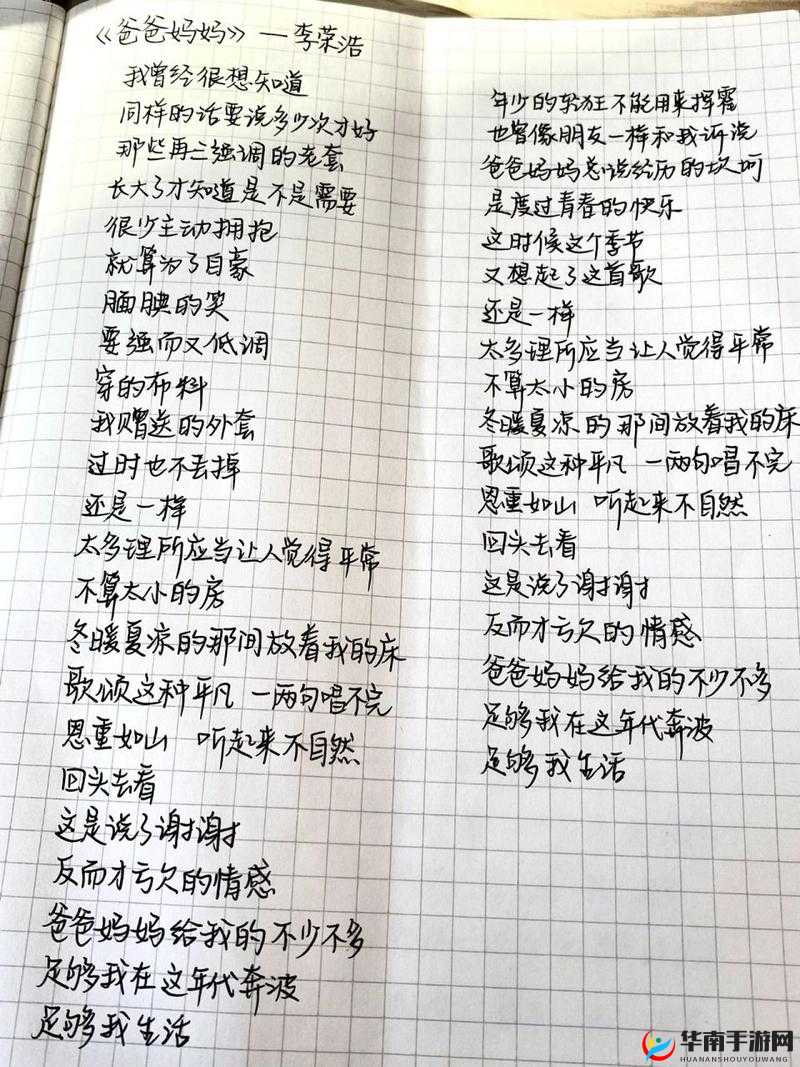 《爸爸妈妈》—李荣浩
我曾经很想知道
同样的话要说多少次才好
那些再三强调的老套
长大了才知道是不是需要
很少主动拥抱
就算为了自豪
腼腆的笑
要强而又低调
穿的布料
我赠送的外套
过时也不丢掉
还是一样
太多理所应当让人觉得平常
不算太小的房
冬暖夏凉的那间放着我的床
歌颂这种平凡 一两句唱不完
恩重如山 听起来不自然
回头去看
这是说了谢谢
反而才亏欠的情感
爸爸妈妈给我的不少不多
足够我在这年代奔波
足够我生活
年少的轻狂不能用来挥霍
也曾像朋友一样和我诉说
爸爸妈妈总说经历的坎坷
是度过青春的快乐
这时候这个季节
又想起了这首歌
还是一样
太多理所应当让人觉得平常
不算太小的房
冬暖夏凉的那间放着我的床
歌颂这种平凡 一两句唱不完
恩重如山 听起来不自然
回头去看
这是说了谢谢
反而才亏欠的情感
爸爸妈妈给我的不少不多
足够我在这年代奔波
足够我生活
华南手游网
HUANANSHOUYOUWANG